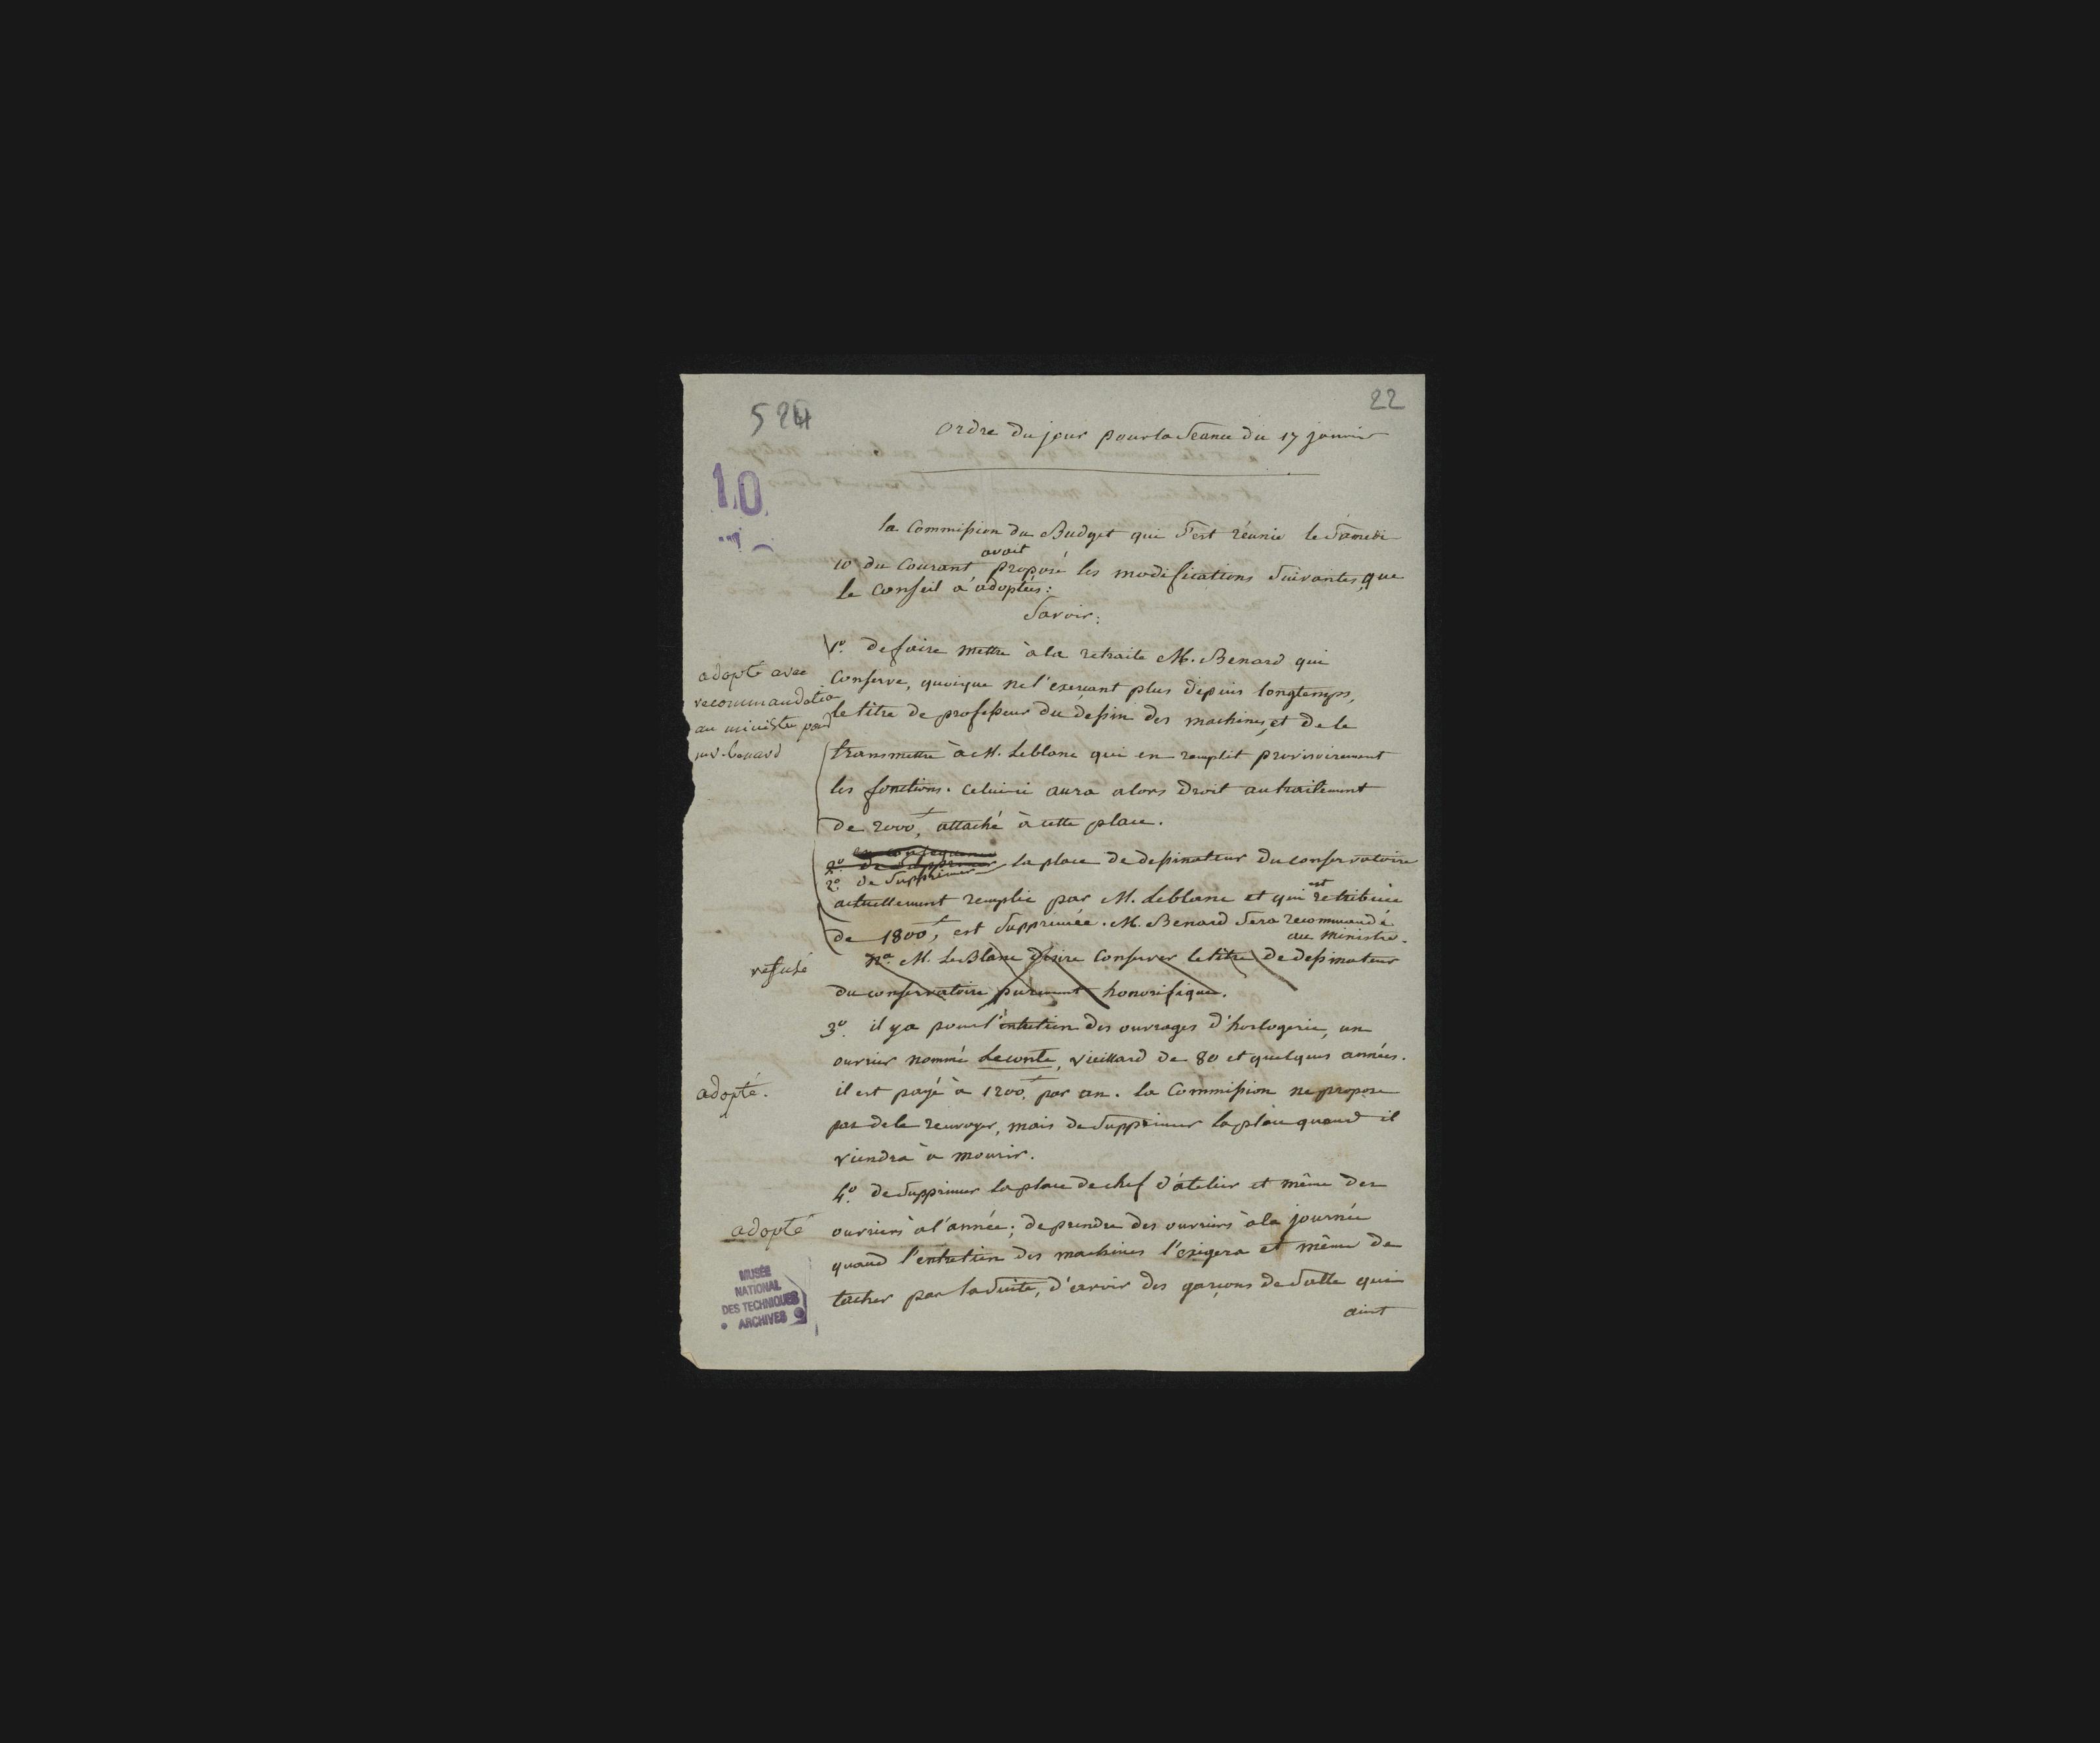 524
22
ordre du jour pour la séance du 17 janvier
10
la Commission du Budget qui s'est réunie le samedi
avait
10 du Courant proposé les modifications suivantes, que
le Conseil a adoptées:
Savoir:
1º. de faire mettre à la retraite M. Benard qui
adopté avec
recommandation
au ministre pour
mr. benard
Conserve, quoique ne l'exercant plus depuis longtemps,
le titre de professeur du dessin des machines, et de le
transmettre à M. Leblanc qui en remplit provisoirement
les fonctions. Celui-ci aura alors droit au traitement
de 2000f, attaché à cette place.
en consequence
2º. de supprimer la place de dessinateur du conservatoire
2º. de Supprimer
est
actuellement remplie par M. Leblanc et qui retribuée
de 1800f, est supprimée. M. Benard sera recommandé
au ministre.
refusé
Nª. M. LeBlanc désire Conserver le titre de dessinateur
du conservatoire purement honorifique.
3º. il y a pour l'entretien des ouvrages d'horlogerie, un
ouvrier nommé Leconte, vieillard de 80 et quelques années.
adopté.
il est payé à 1200f. par an. La Commission ne propose
pas de le renvoyer, mais de supprimer la place quand il
viendra à mourir.
4º. de supprimer la place de chef d'atelier et même des
adopté
ouvriers à l'année; de prendre des ouvriers à la journée
quand l'entretien des machines l'exigera et même de
tacher par la suite, d'avoir des garçons de salle qui
aient
MUSÉE
NATIONAL
DES TECHNIQUES
ARCHIVES